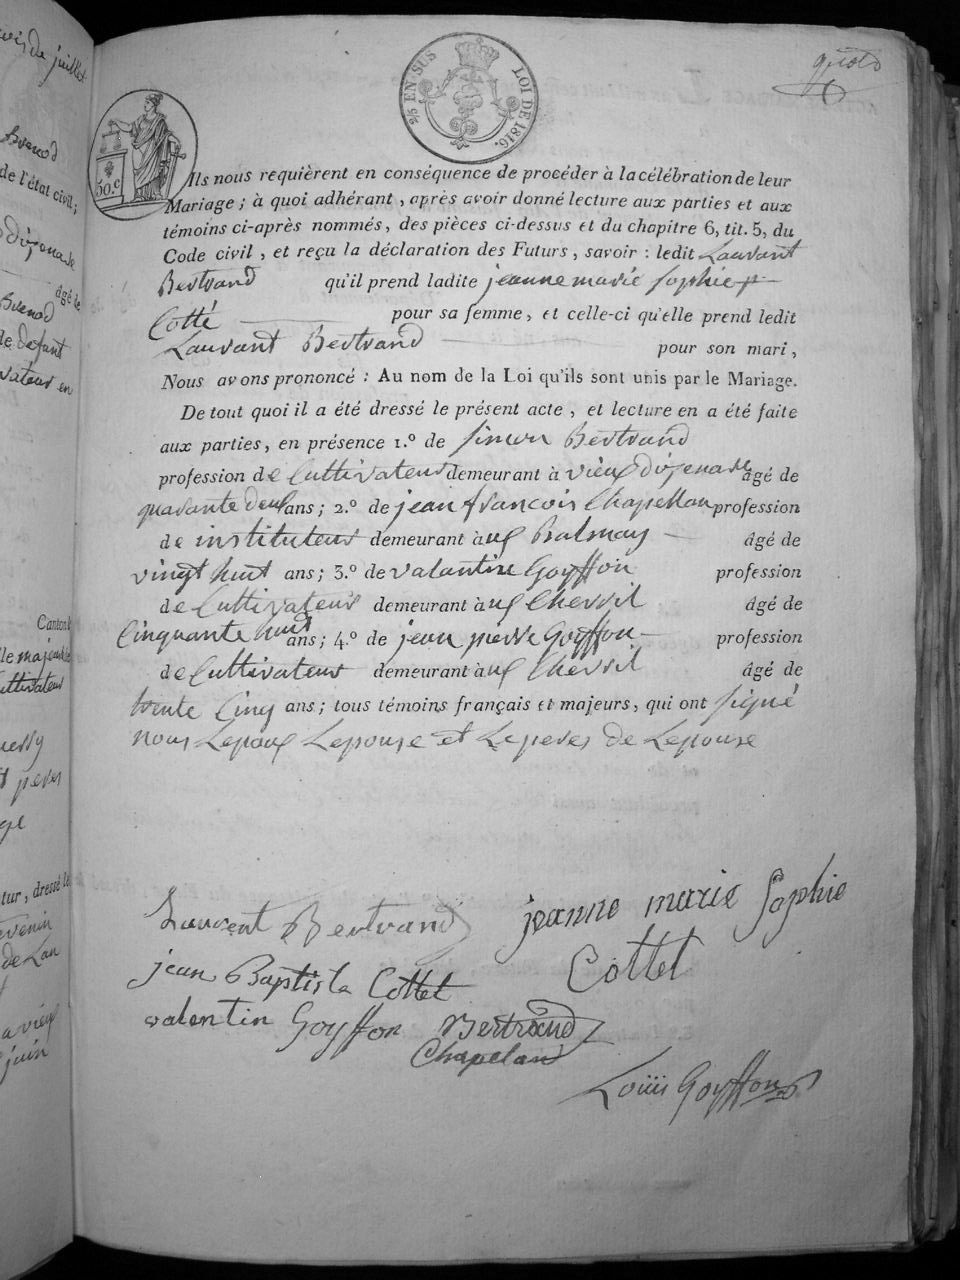 ois de juillet
Brenod
de l'état civil;
âgé de
Brenod
de defunt
Canton
lle majeure
Cultivateur
et peres
tur, dressé le
juin
2/5 EN SUS
LOI DE 1816.
50.c
Ils nous requièrent en conséquence de procéder à la célébration de leur
Mariage ; à quoi adhérant, après avoir donné lecture aux parties et aux
témoins ci-après nommés, des pièces ci-dessus et du chapitre 6, tit. 5, du
Code civil, et reçu la déclaration des Futurs, savoir : ledit Laurant
Bertrand qu'il prend ladite jeanne marie Sophie
Cotté pour sa femme, et celle-ci qu'elle prend ledit
Laurant Bertrand pour son mari,
Nous avons prononcé : Au nom de la Loi qu'ils sont unis par le Mariage.
De tout quoi il a été dressé le présent acte, et lecture en a été faite
aux parties, en présence 1.° de Simon Bertrand
profession de Cultivateur demeurant à vieux dizenave âgé de
quarante deux ans ; 2.° de jean francois Chapellan profession
de instituteur demeurant à aux Balmay âgé de
vingt huit ans ; 3.° de valantin Goyffon profession
de Cultivateur demeurant à ux Chevril âgé de
Cinquante huit ans ; 4.° de jean pierre Goyffon profession
de Cultivateur demeurant à ux Chevril âgé de
trente Cinq ans ; tous témoins français et majeurs, qui ont signé
nous Lepoux Lepouse et Le peres de Lepouse
Laurent Bertrand
jeanne marie Sophie
Cottet
jean Baptista Cottet
valentin Goyffon Bertrand
Chapelan
Louis Goyffon